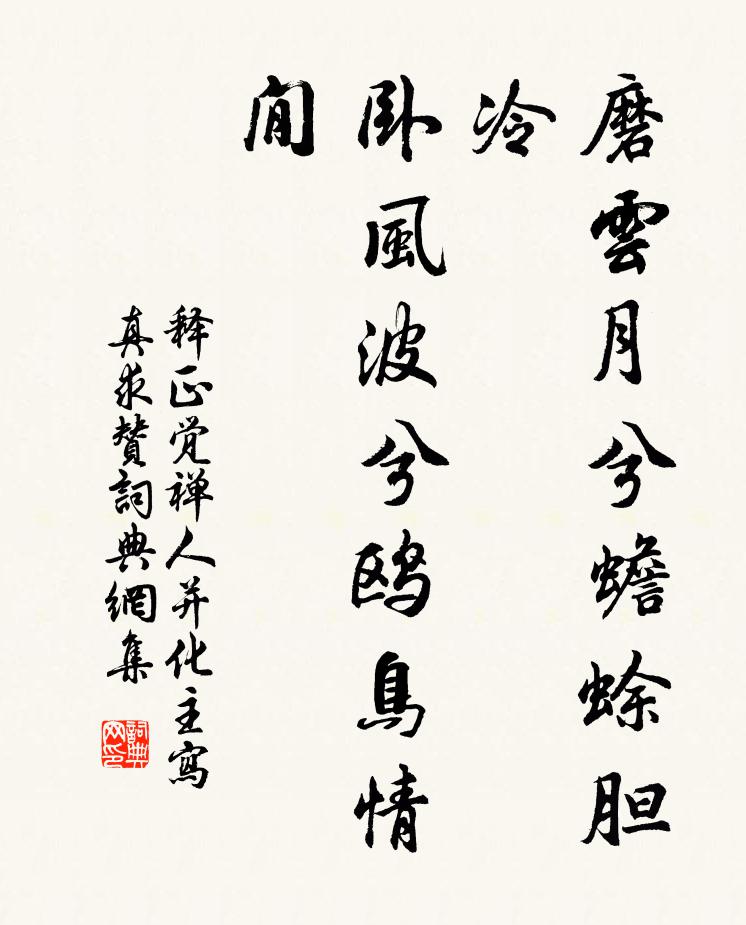 磨雲月兮蟾蜍胆
冷
卧風波兮鸥鳥情
閒
释正觉禅人并化主寫
真求賛詞典網集
詞典
网印